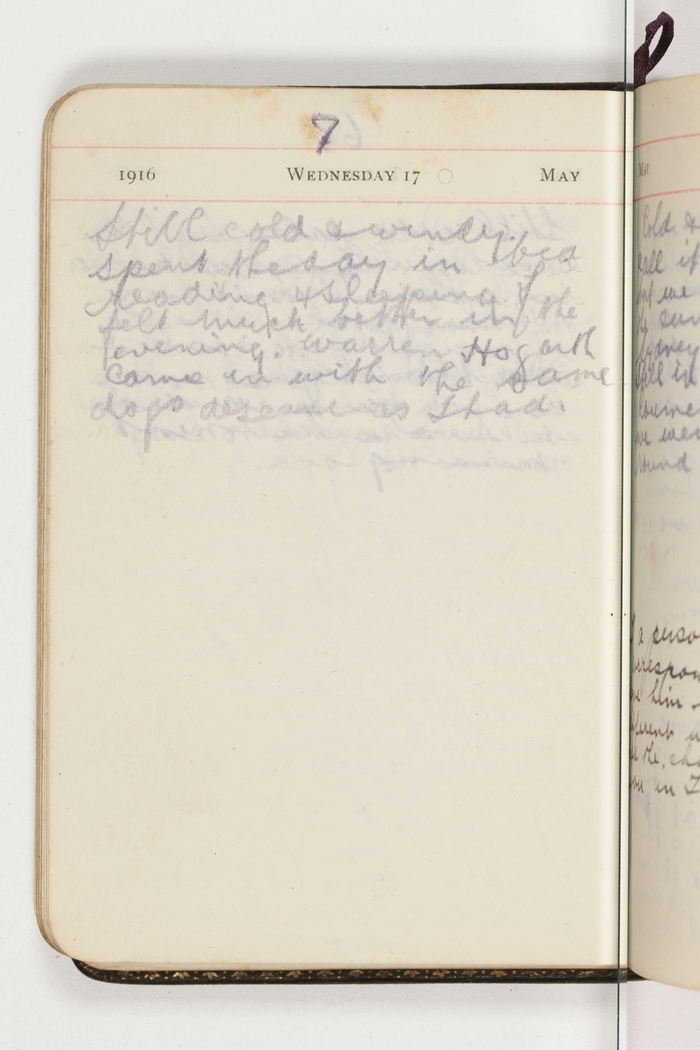 7
1916 WEDNESDAY 17 MAY
Still cold & windy.
Spent the day in bed
reading & sleeping. I
felt much better in the
evening. Warren Hogarth
came in with the same
dogs disease as I had.
MAY
Cold &
all
we
Sydney
in
we wer
round
a perso
him
in